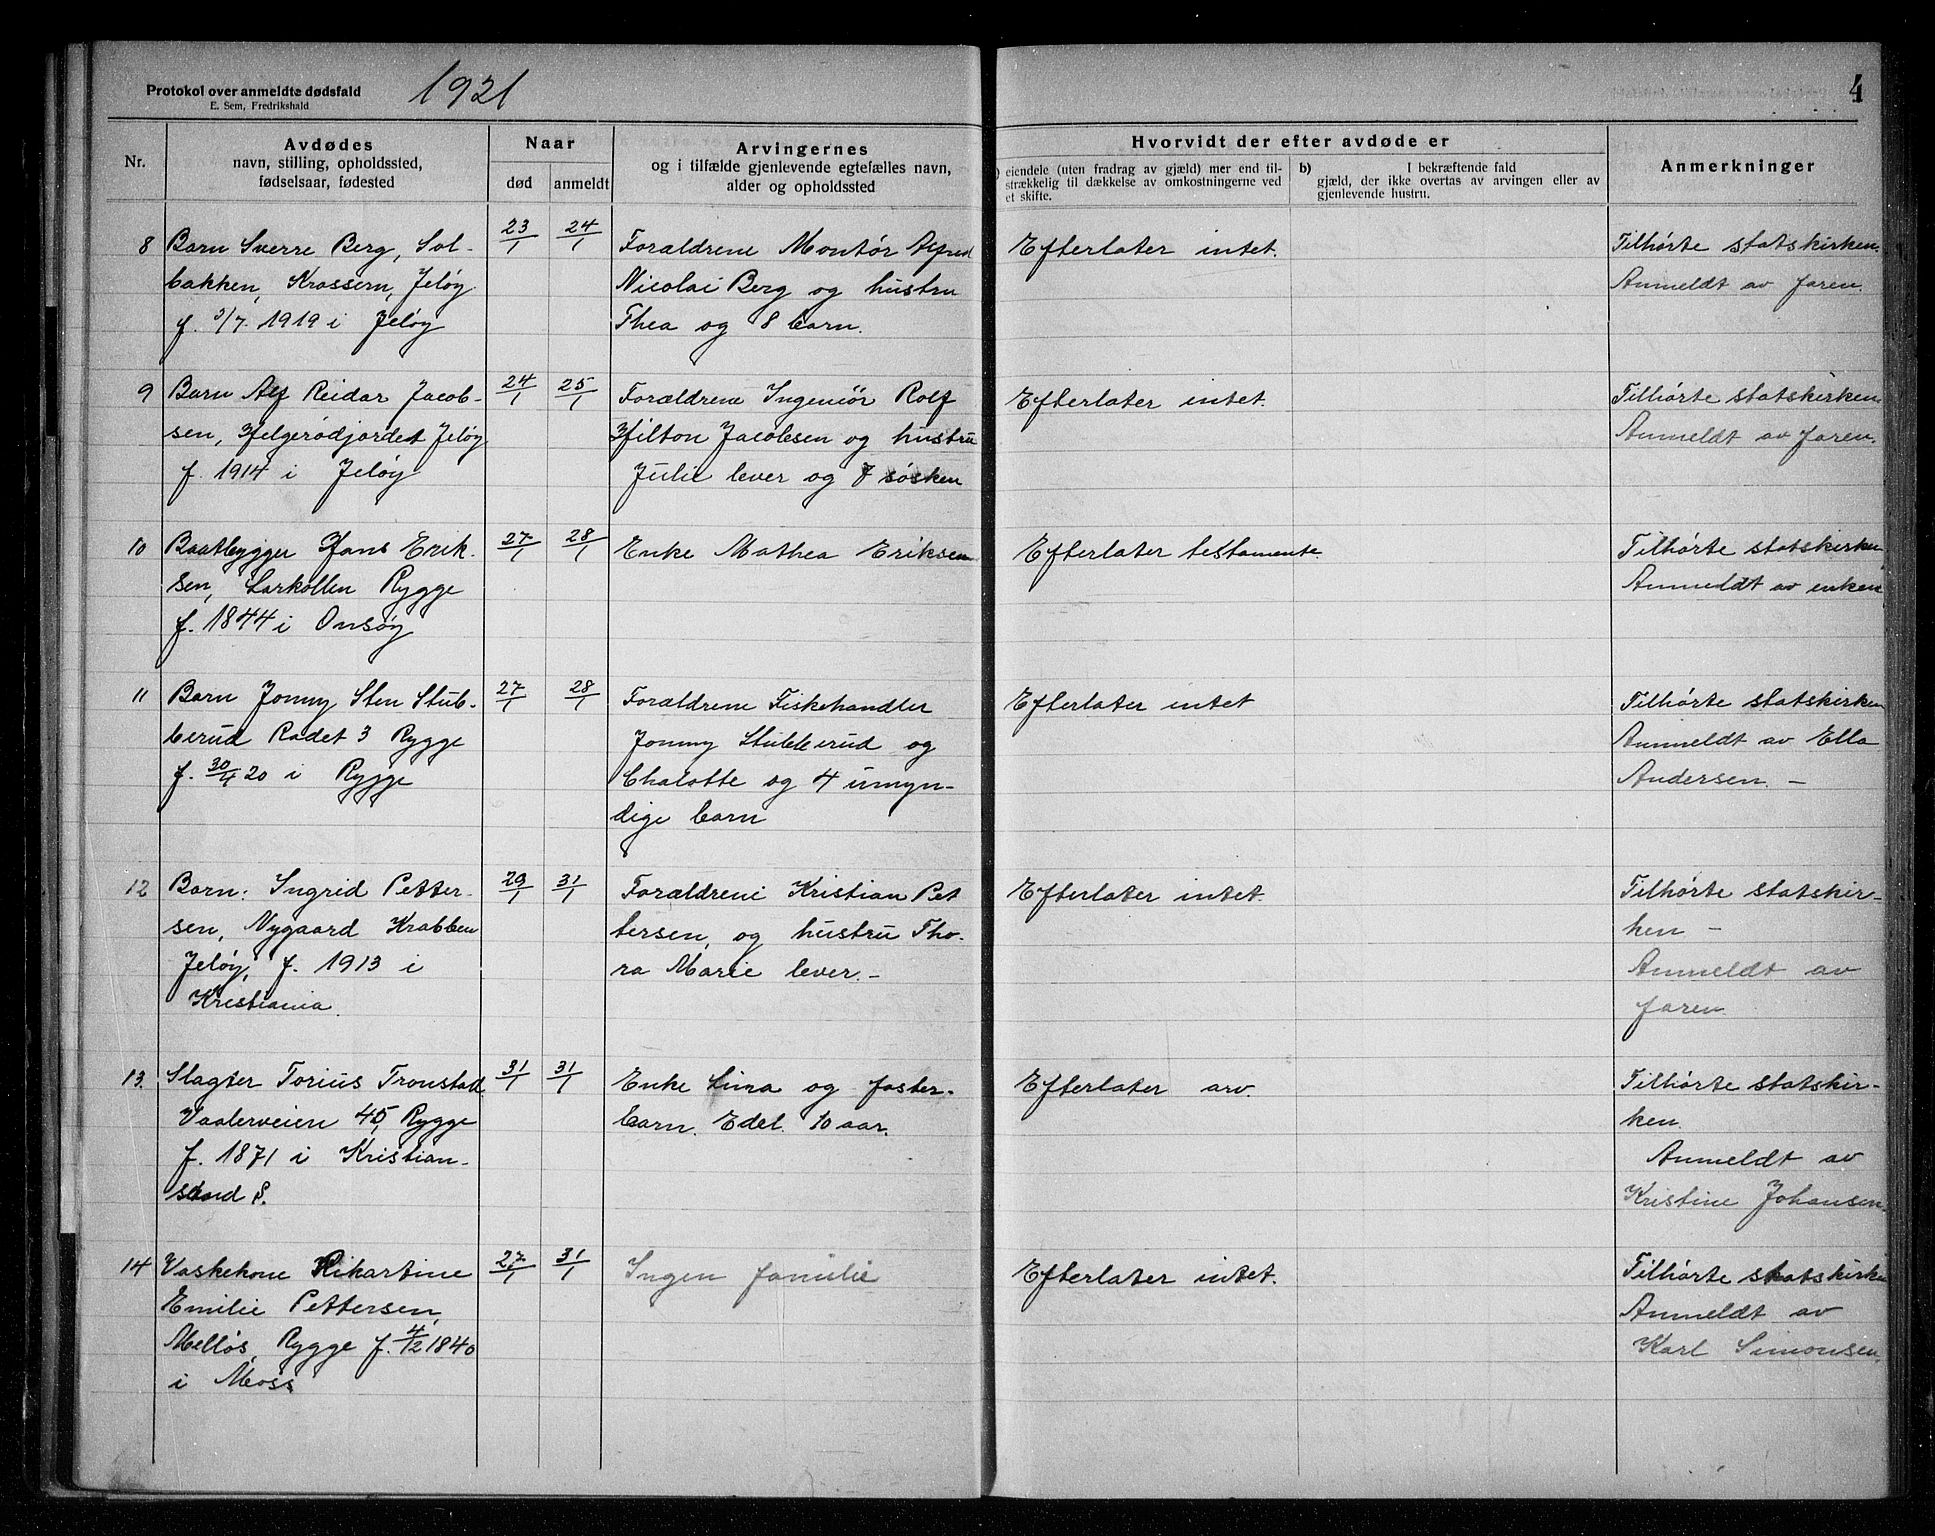 Protokol over anmeldte dødsfald 1921
E. Sem, Fredrikshald
4
Nr.
Avdødes
navn, stilling, opholdssted,
fødselsaar, fødested
Naar
død
anmeldt
Arvingernes
og i tilfælde gjenlevende egtefælles navn,
alder og opholdssted
Hvorvidt der efter avdøde er
) eiendele (uten fradrag av gjæld) mer end til-
strækkelig til dækkelse av omkostningerne ved
et skifte.
b) I bekræftende fald
gjæld, der ikke overtas av arvingen eller av
gjenlevende hustru.
Anmerkninger
8
Barn Sverre Berg, Sol-
bakken, Krossern, Jeløy
f. 3/7. 1919 i Jeløy
23/1
24/1
Forældrene Montør Alfred
Nicolai Berg og hustru
Thea og 8 barn.
Efterlater intet.
Tilhørte statskirken.
Anmeldt av faren.
9
Barn Alf Reidar Jacob-
sen, Helgerødjordet Jeløy
f. 1914 i Jeløy
24/1
25/1
Forældrene Ingeniör Rolf
Hilton Jacobsen og hustru
Julie lever og 7 søsken
Efterlater intet.
Tilhørte statskirken
Anmeldt av faren.
10
Baatbygger Hans Erik-
sen, Larkollen Rygge
f. 1844 i Onsøy
27/1
28/1
Enke Mathea Eriksen
Efterlater testamente
Tilhørte statskirken
Anmeldt av enken
11
Barn Jonny Sten Stub-
berud Rådet 3 Rygge
f. 30/4 20 i Rygge
27/1
28/1
Forældrene Fiskehandler
Jonny Stubberud og
Chalotte og 4 umyn-
dige barn
Efterlater intet
Tilhørte statskirken
Anmeldt av Ella
Andersen. -
12
Barn: Ingrid Petter-
sen, Nygaard Krabben
Jeløy, f. 1913 i
Kristiania.
29/1
31/1
Forældrene Kristian Pet
tersen, og hustru Tho-
ra Marie lever. -
Efterlater intet.
Tilhørte statskir-
ken -
Anmeldt av
faren.
13.
Slagter Torius Tronstad
Vaalerveien 45, Rygge
f. 1871 i Kristian-
sand S.
31/1
31/1
Enke Lina og foster-
barn. Edel. 10 aar.
Efterlater arv.
Tilhørte statskir-
ken.
Anmeldt av
Kristine Johansen.
14
Vaskekone Rikartine
Emilie Pettersen,
Melløs, Rygge f. 4/2 1840
i Moss
27/1
31/1
Ingen familie
Efterlater intet.
Tilhørte statskirken
Anmeldt av
Karl Simonsen.